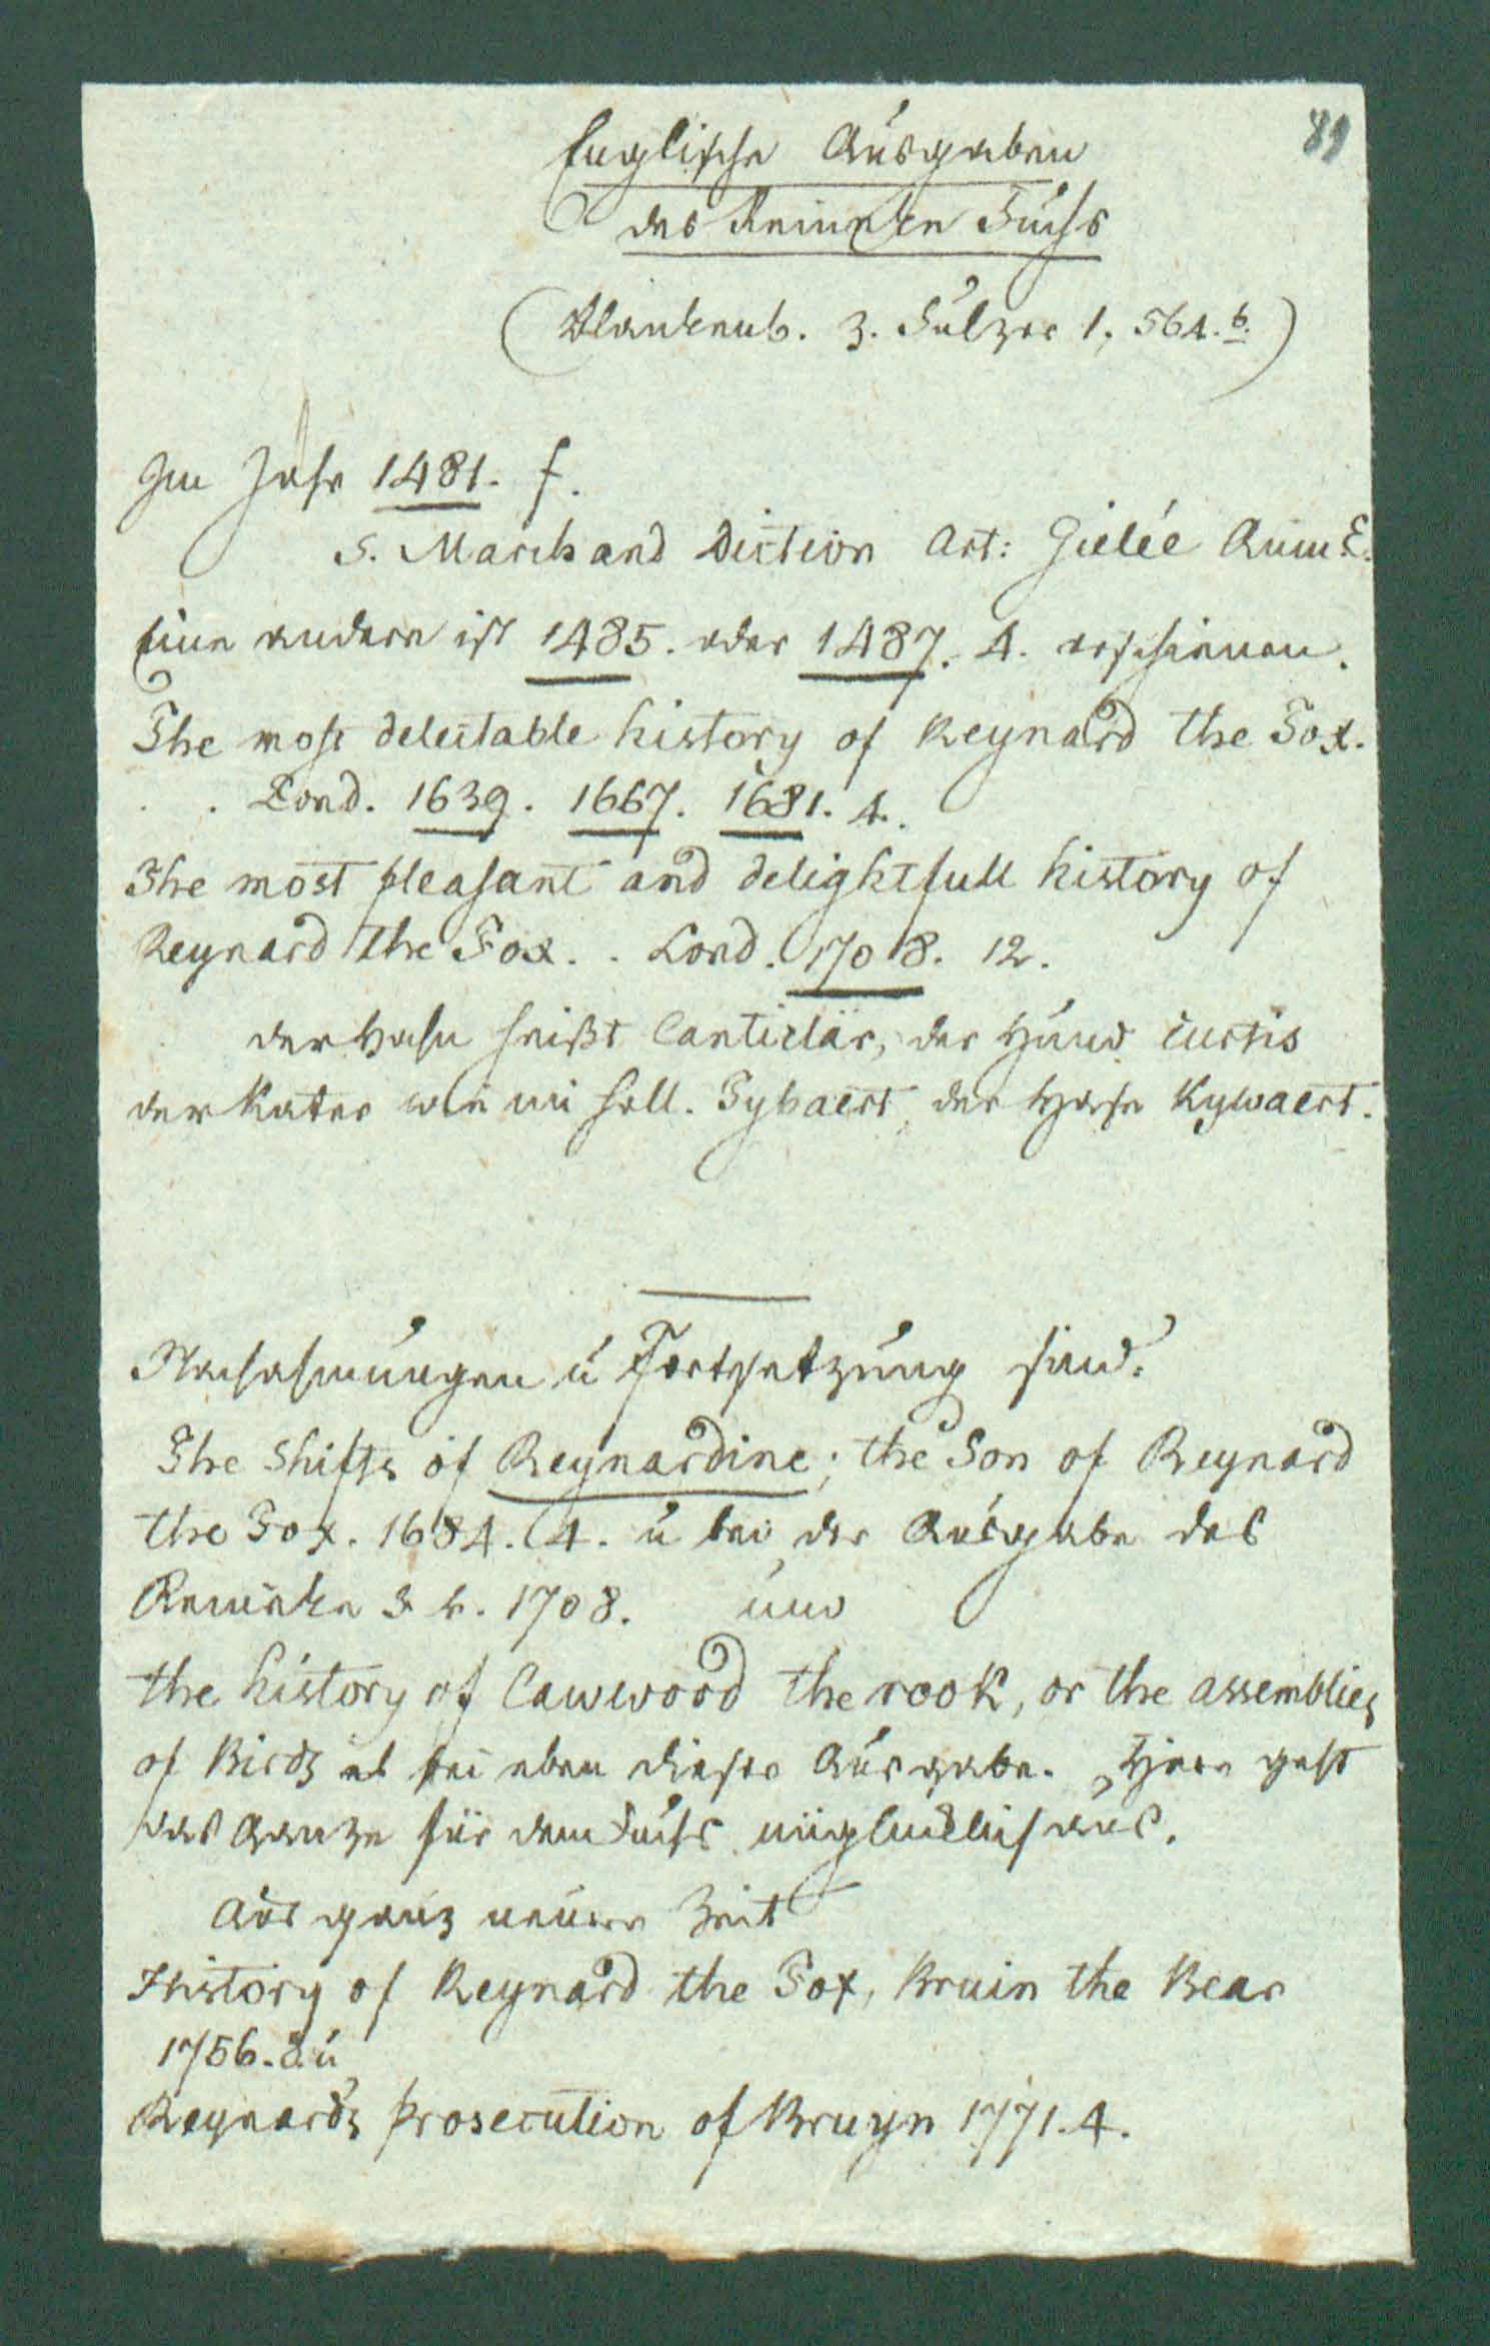 89
Englische Ausgaben
des Reineken Fuchs
(Blankenb. z. Sulzer 1, 564.b.)
Im Jahr 1481. f.
S. Marchand Diction Art: Gielée Anm E.
Eine andere ist 1485. oder 1487. 4. erschienen.
The most delectable history of Reynard the Fox.
. . Lond. 1639. 1667. 1681. 4.
The most pleasant and delightfull history of
Reynard the Fox. . Lond. 1708. 12.
der Hahn heißt Canticlär, der Hund Curtis
der Kater wie im holl. Tybaert, der Hase Kywaert.
Nachahmungen u Fortsetzung sind:
The Shifts of Reynardine; the Son of Reynard
the Fox. 1684. 4. u bei der Ausgabe des
Reineke v. 1708. und
the history of Cawwood the rook, or the assemblies
of Birds bei eben dieser Ausgabe. Hier geht
das Ganze für den Fuchs unglücklich aus.
Aus ganz neuer Zeit
History of Reynard the Fox, Bruin the Bear
1756. 8. u
Reynards prosecution of Bruyn 1771. 4.